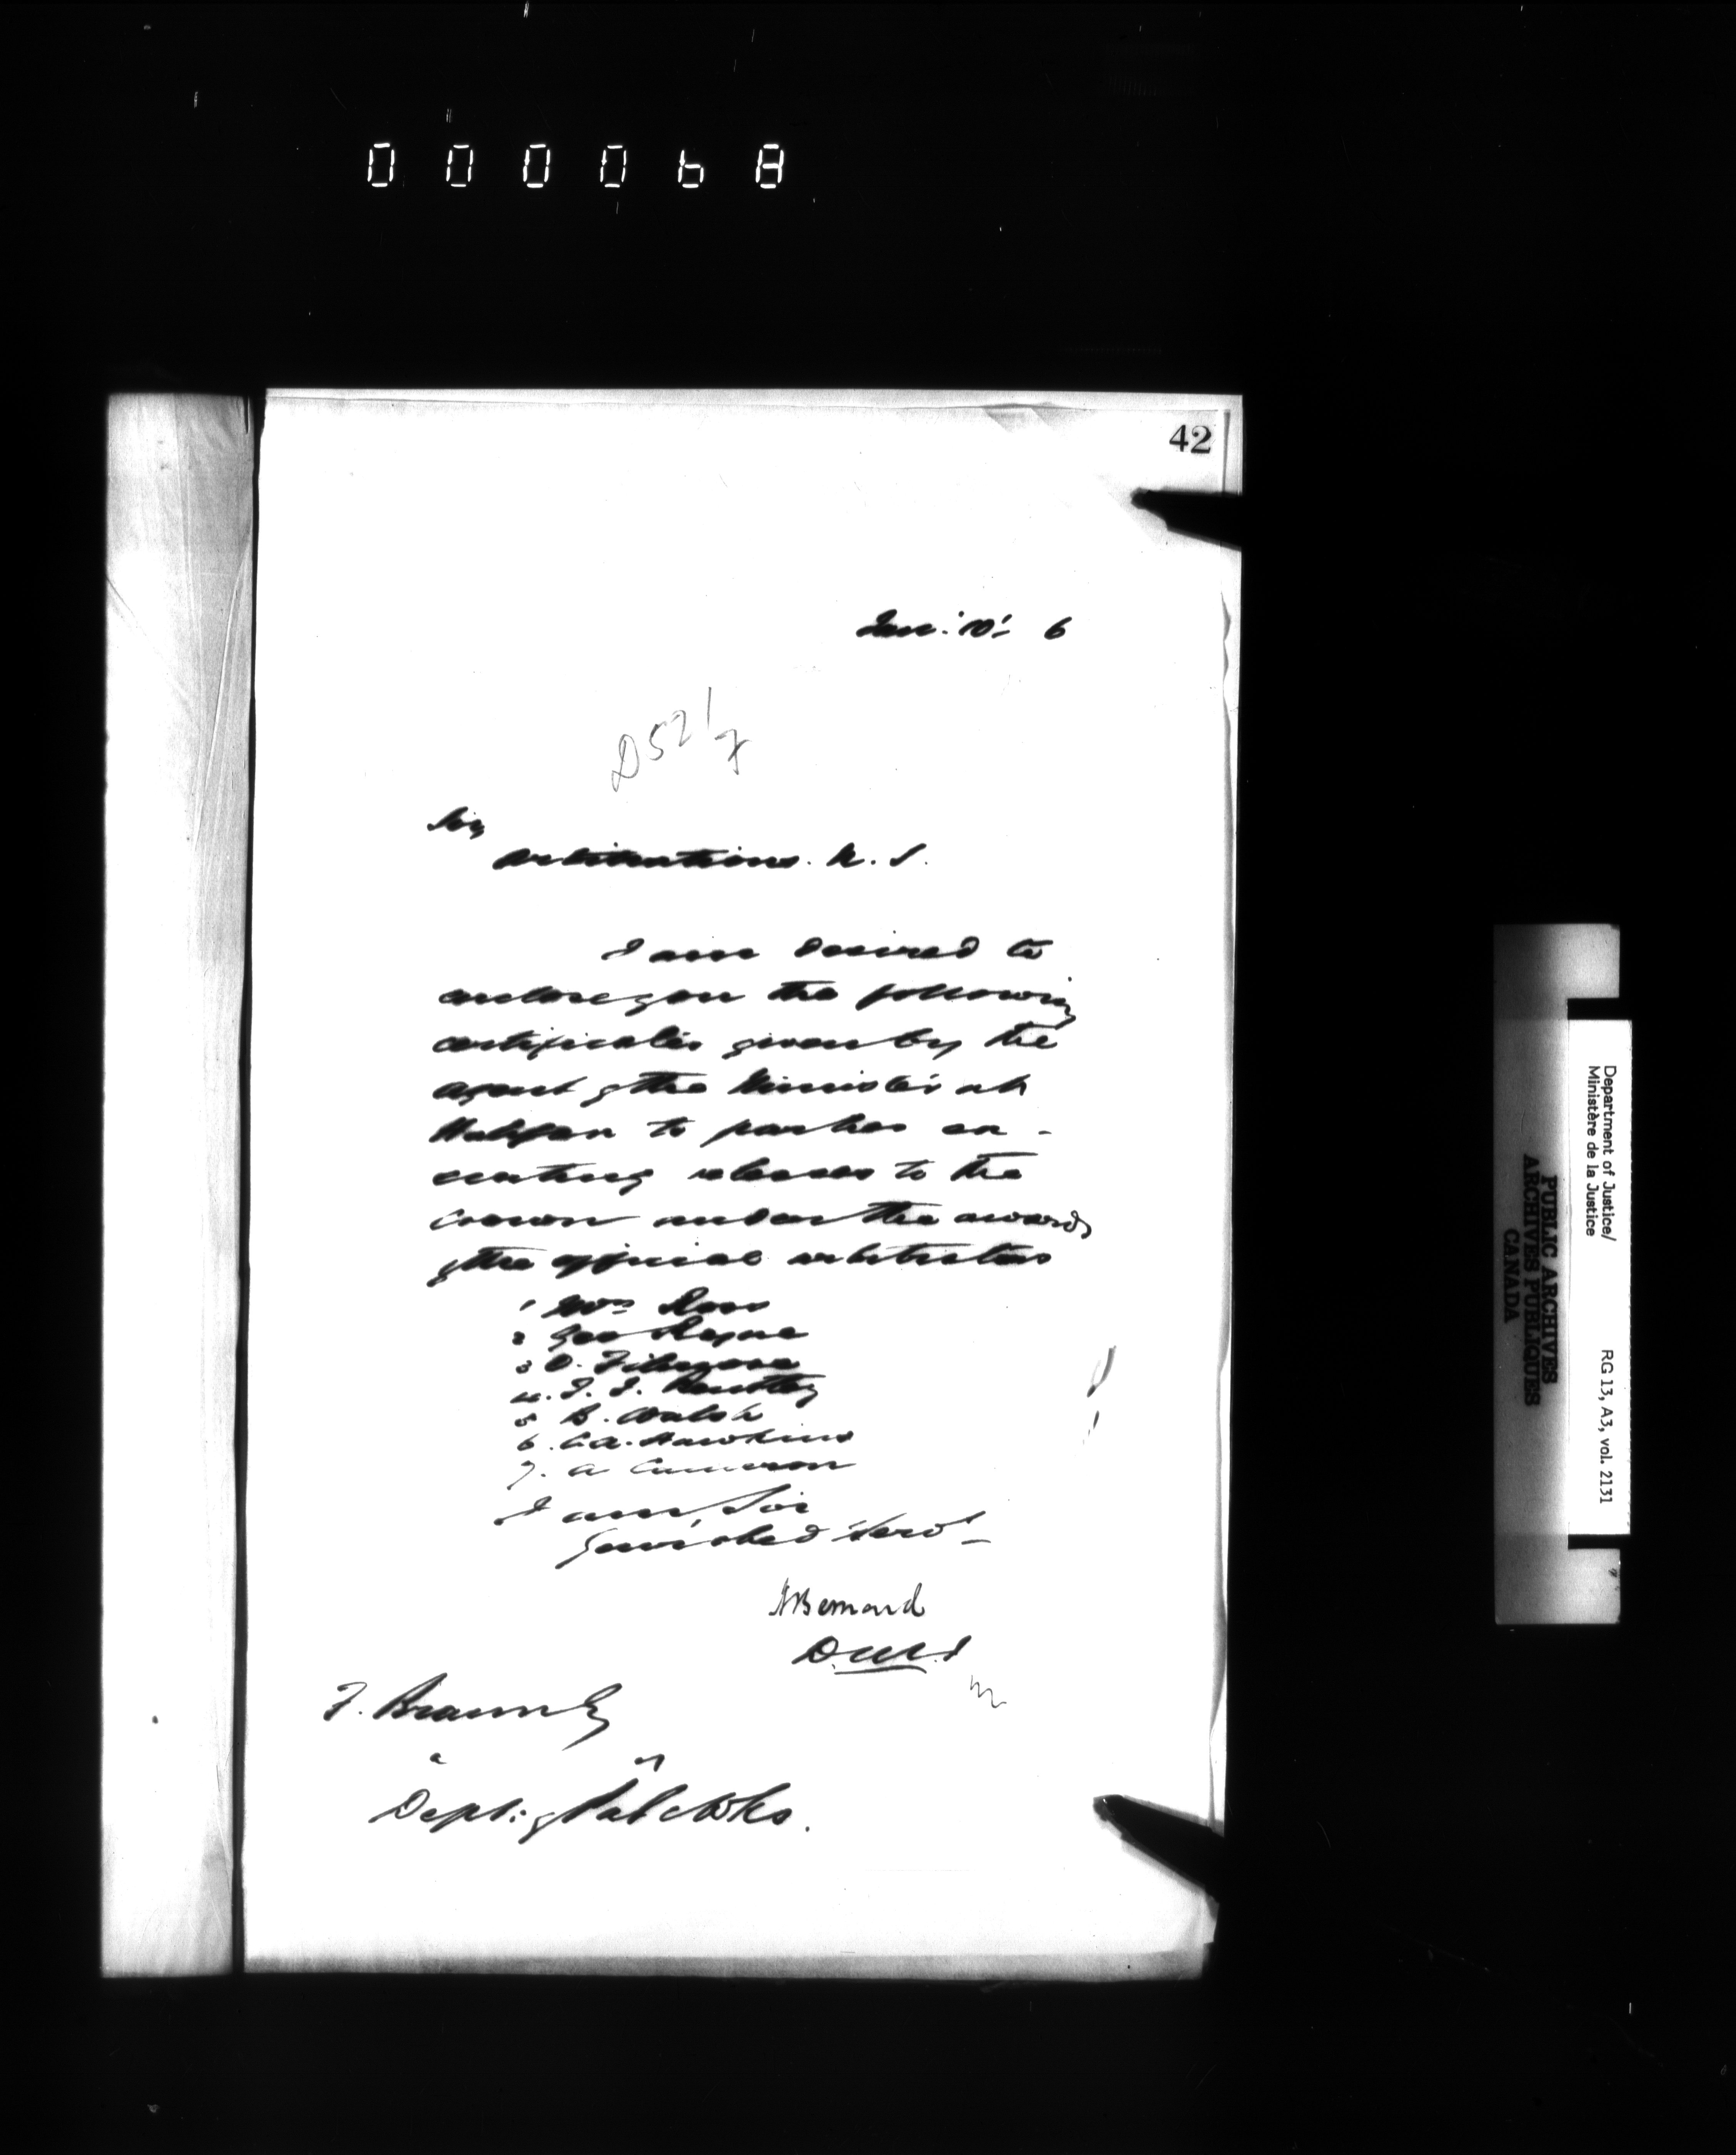 000068
42
Jan: 10: 6
D 52 1/7
Sir,
Arbitrations. N. S.
I am desired to
enclose you the following
certificates given by the
agent of the Minister at
Halifax to parties ex-
ecuting releases to the
crown under the awards
of the official arbitrators
1 Wm Ross
2 Geo
3 O.
4. J. J.
5 B. Walsh
6. C.A. Hawkins
7. A Cameron
I am, Sir
Your obed Serv't
HBernard
D.M.J
F. Braun Esq
Dept: of Pub Wks.
Department of Justice/
Ministère de la Justice
RG 13, A3, vol. 2131
PUBLIC ARCHIVES
ARCHIVES PUBLIQUES
CANADA